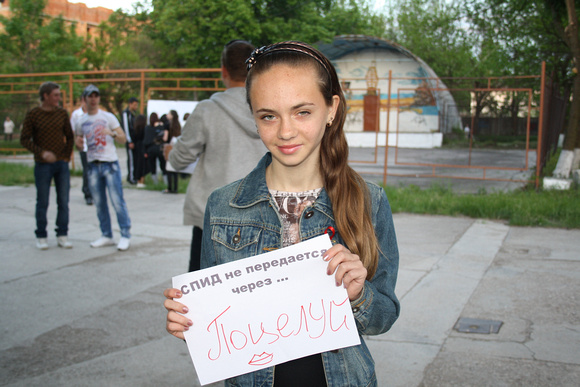 СПИД не передается
через ...
Поцелуй